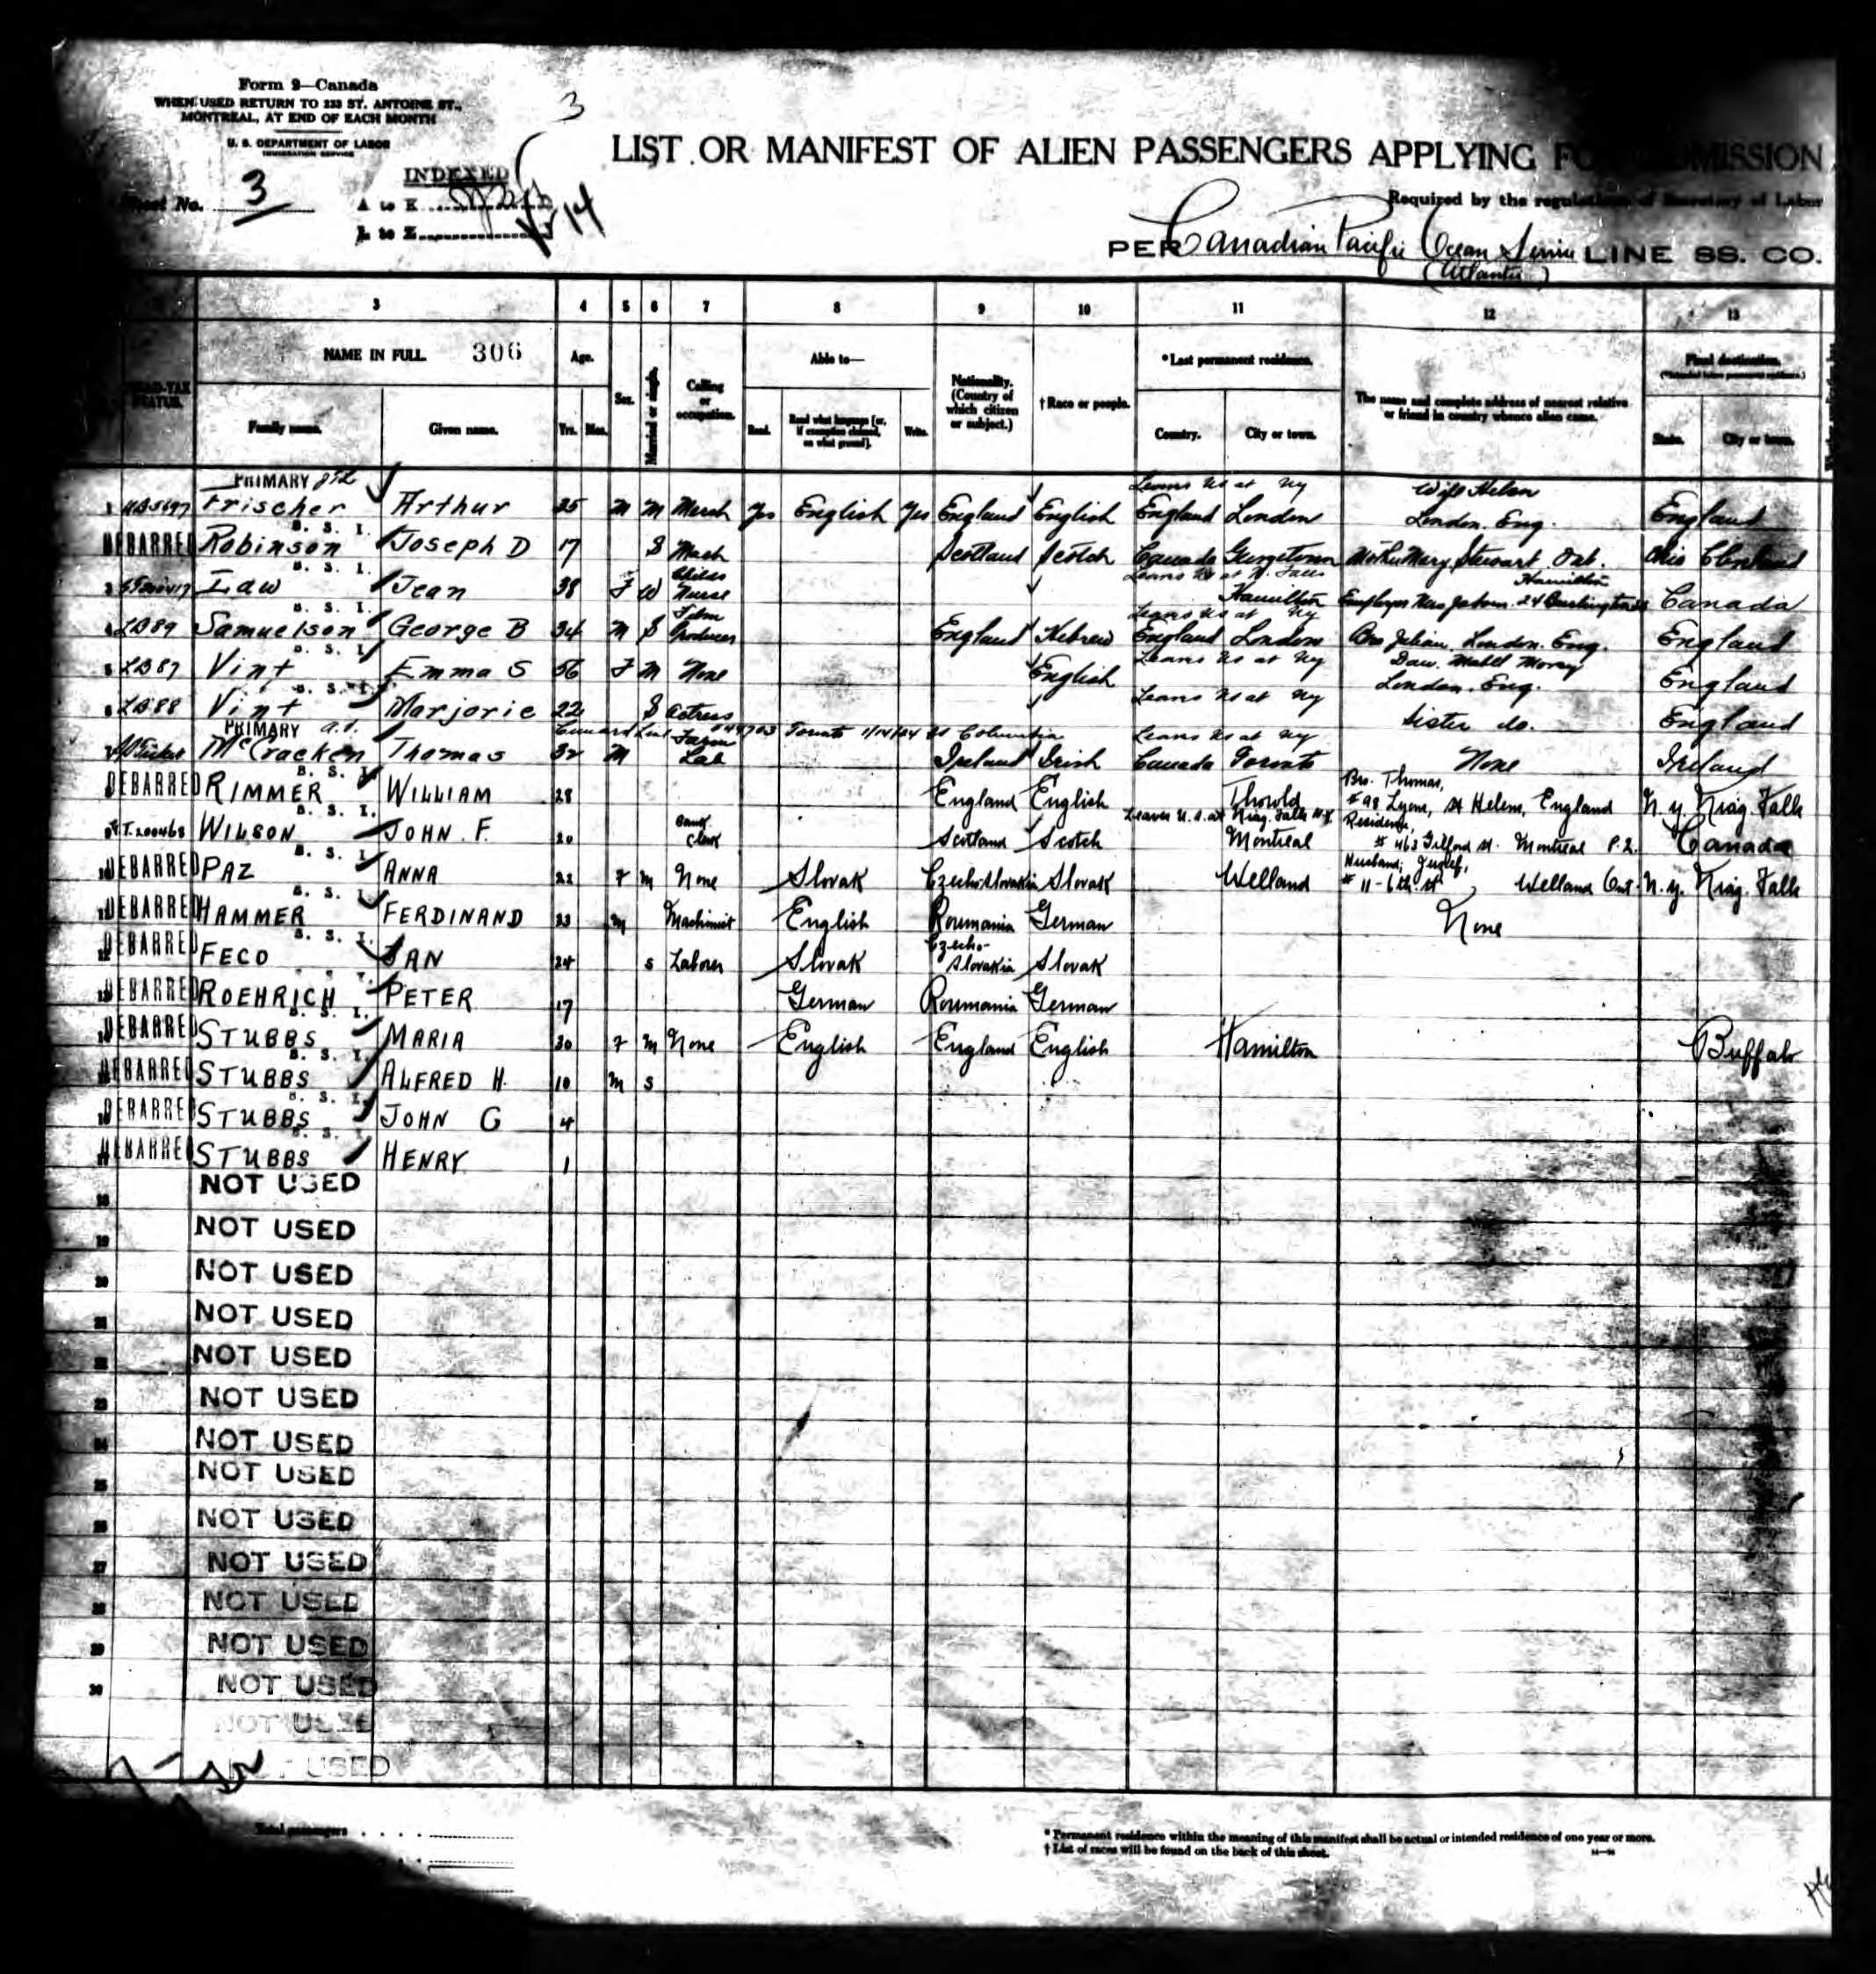 Form 9—Canada
WHEN USED RETURN TO 233 ST. ANTOINE ST.,
MONTREAL, AT END OF EACH MONTH
U. S. DEPARTMENT OF LABOR
IMMIGRATION SERVICE
3
INDEXED
Sheet No. 3
A to K
L to Z
14
LIST OR MANIFEST OF ALIEN PASSENGERS APPLYING FOR ADMISSION
Required by the regulations of Secretary of Labor
PER Canadian Pacific Ocean Service LINE SS. CO.
(Atlantic)
3 4 5 6 7 8 9 10 11 12 13
HEAD-TAX STATUS.
NAME IN FULL. 306
Family name. Given name.
Age.
Yrs. Mos.
Sex.
Married or single.
Calling or occupation.
Able to—
Read. Read what language [or, if exemption claimed, on what ground]. Write.
Nationality. (Country of which citizen or subject.)
† Race or people.
* Last permanent residence.
Country. City or town.
The name and complete address of nearest relative or friend in country whence alien came.
Final destination.
(*Intended future permanent residence.)
State. City or town.
PRIMARY Leaves US at NY Wife Helen
1 Frischer Arthur 35 M M Merch Yes English Yes England English England London London. Eng. England
B. S. I.
DEBARRED Robinson Joseph D 17 S Mach Scotland Scotch Canada Georgetown Mother Mary, Stewart. Ont. Ohio Cleveland
B. S. I. Childs Leaves US at N. Falls Hamilton
3 Law Jean 38 F W Nurse Hamilton Employer Mrs 24 Canada
B. S. I. Film Leaves US at NY
4 LB89 Samuelson George B 34 M S Producer England Hebrew England London Bro Julian, London. Eng. England
B. S. I. Leaves US at NY Daw. Mabel
5 LB87 Vint Emma S 56 F M None English London. Eng. England
B. S. I. Leaves US at NY
6 LB88 Vint Marjorie 22 S Actress Sister do. England
PRIMARY Cunard Line Toronto 1/14/24 SS Columbia Leaves US at NY
7 McCracken Thomas 32 M Farm Lab Ireland Irish Canada Toronto None Ireland
B. S. I. Bro. Thomas,
DEBARRED RIMMER WILLIAM 28 England English Thorold #98 Lyons, St Helens, England N.Y. Niag. Falls
B. S. I. Leaves U.S. at Niag. Falls N.Y. Residence,
WILSON JOHN. F. 20 Bank Clerk Scotland Scotch Montreal # 463 Gilford St. Montreal P.Q. Canada
B. S. I. Husband;
DEBARRED PAZ ANNA 22 F M None Slovak CzechoSlovakia Slovak Welland # 11-6th. St, Welland Ont. N.Y. Niag. Falls
B. S. I.
DEBARRED HAMMER FERDINAND 23 M Machinist English Roumania German None
B. S. I.
DEBARRED FECO JAN 24 S Laborer Slovak Czecho-Slovakia Slovak
DEBARRED ROEHRICH PETER 17 German Roumania German
B. S. I.
DEBARRED STUBBS MARIA 30 F M None English England English Hamilton Buffalo
B. S. I.
DEBARRED STUBBS ALFRED H. 10 M S
B. S. I.
DEBARRED STUBBS JOHN G 4
B. S. I.
DEBARRED STUBBS HENRY 1
18 NOT USED
19 NOT USED
20 NOT USED
21 NOT USED
22 NOT USED
23 NOT USED
24 NOT USED
25 NOT USED
26 NOT USED
27 NOT USED
28 NOT USED
29 NOT USED
30 NOT USED
NOT USED
NOT USED
Total passengers
* Permanent residence within the meaning of this manifest shall be actual or intended residence of one year or more.
† List of races will be found on the back of this sheet.